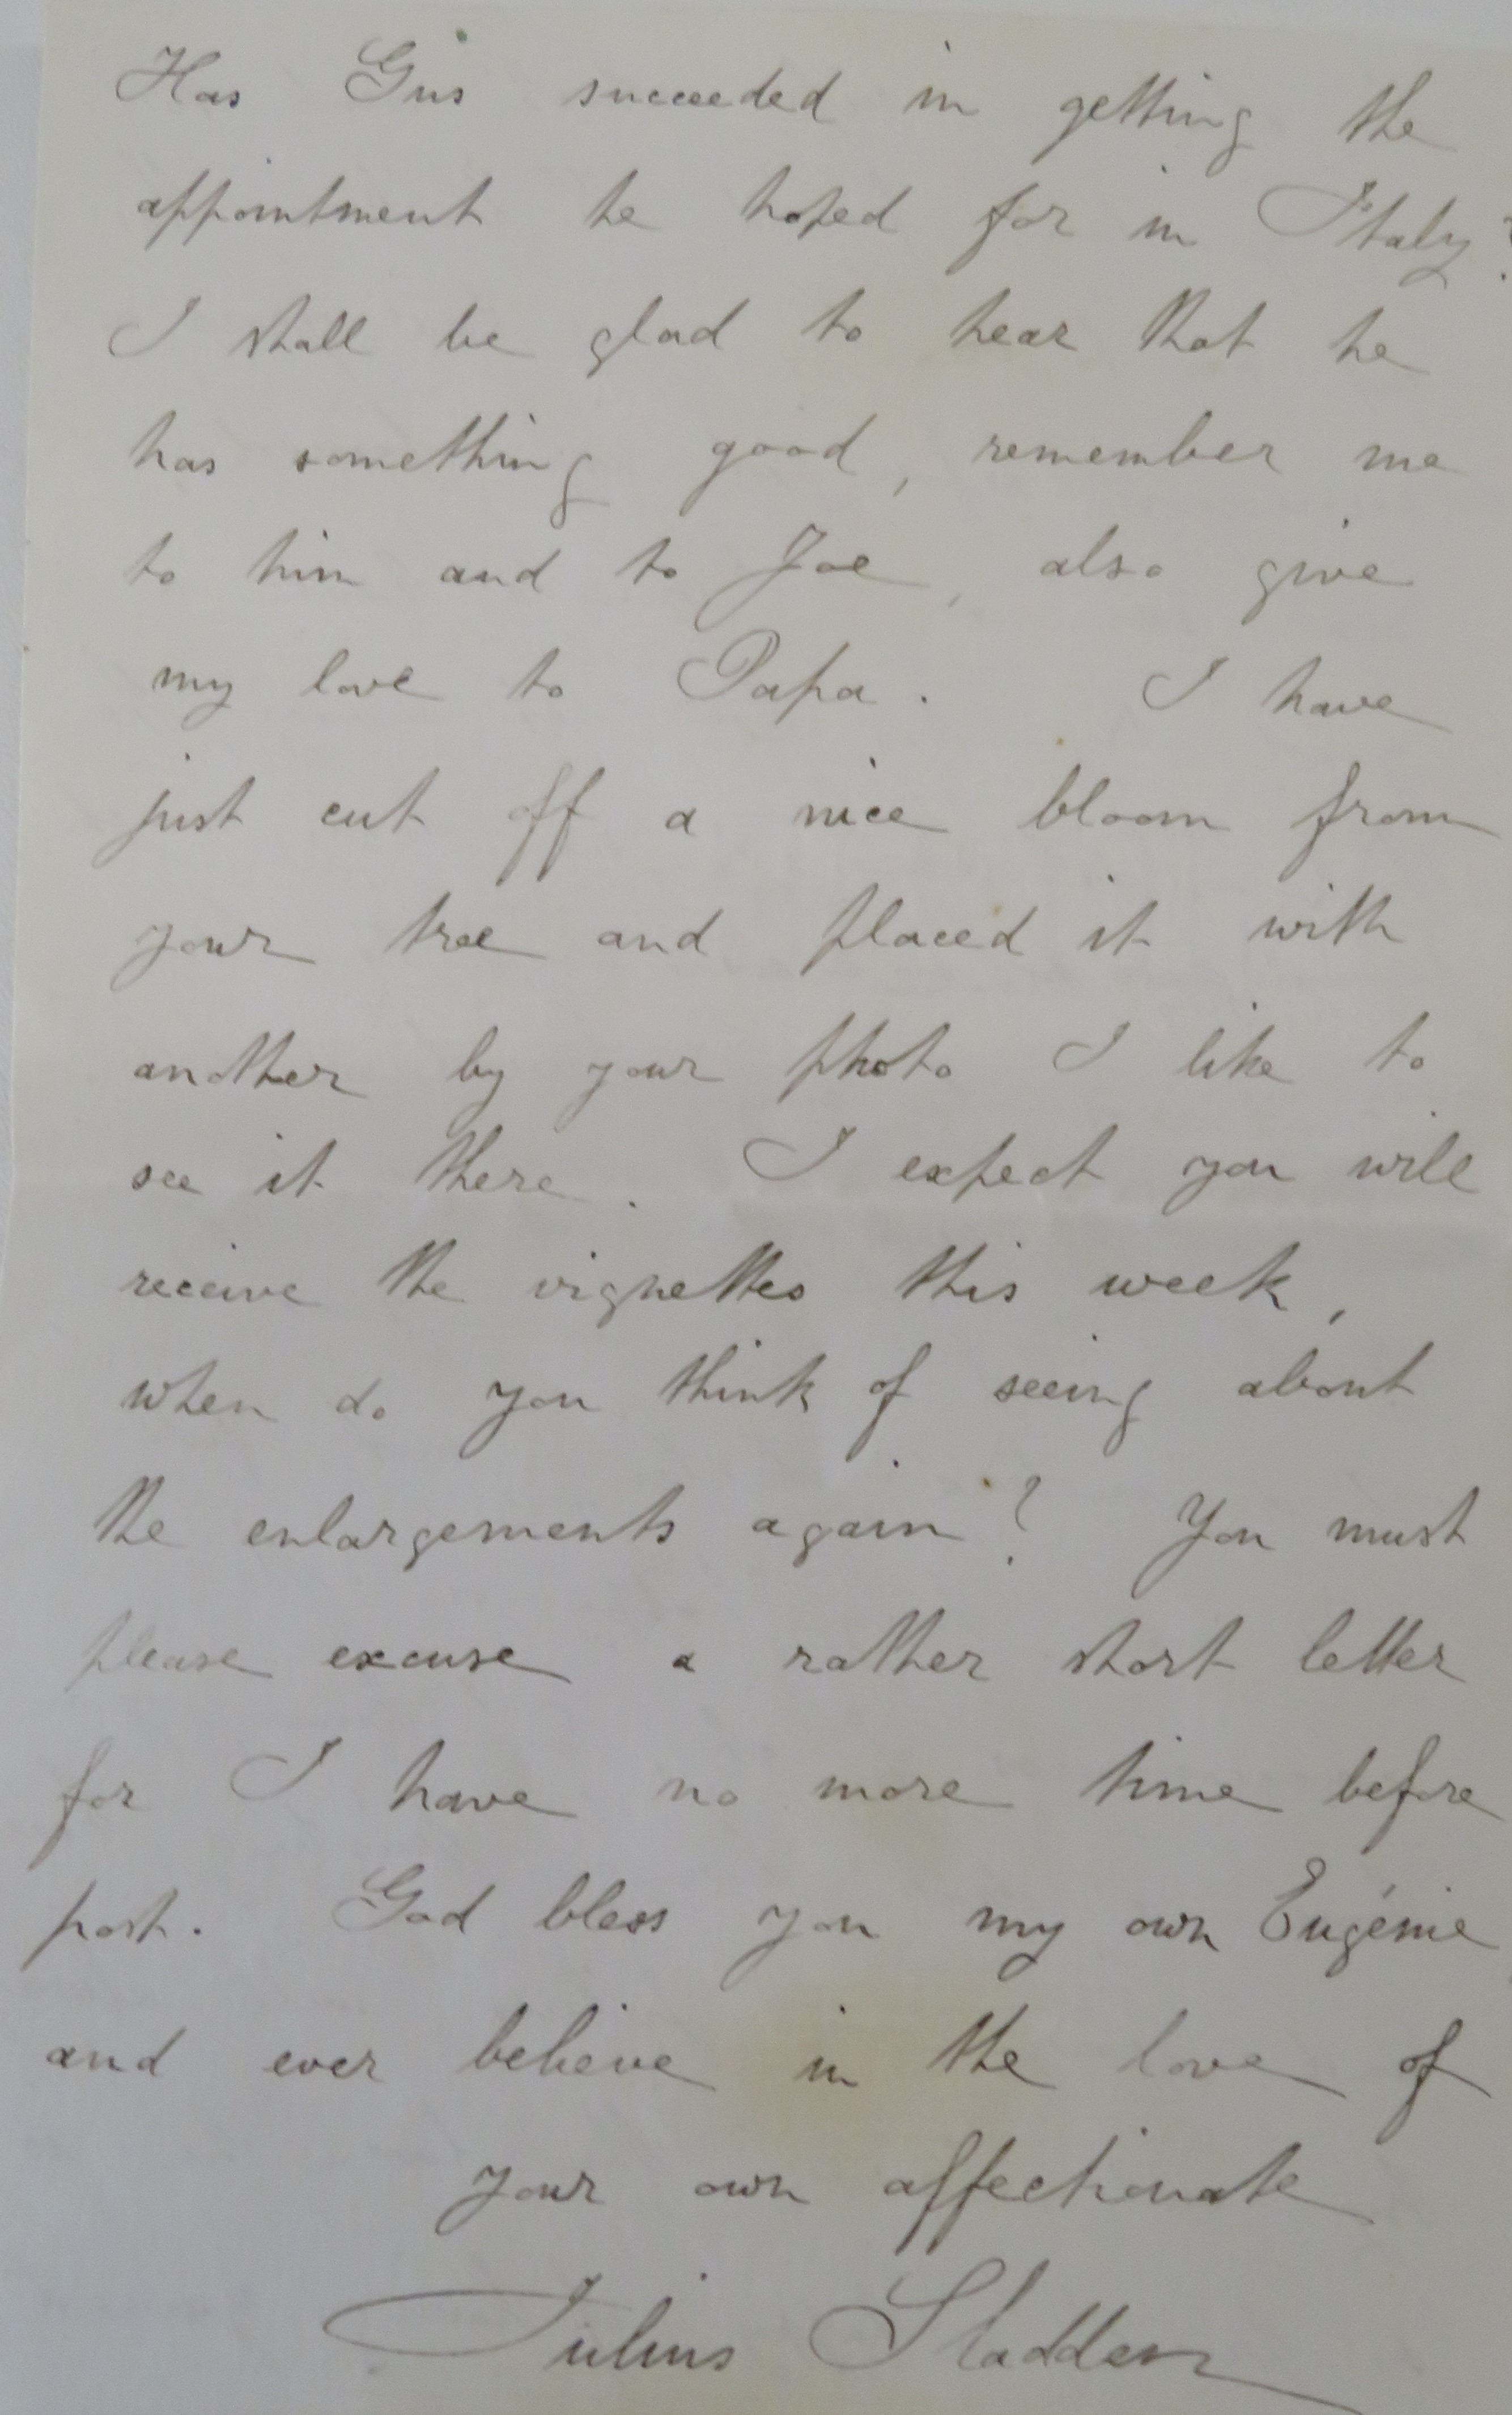 Has Gus succeeded in getting the
appointment he hoped for in Italy?
I shall be glad to hear that he
has something good, remember me
to him and to Joe, also give
my love to Papa. I have
just cut off a nice bloom from
your tree and placed it with
another by your photo I like to
see it there. I expect you will
receive the vignettes this week,
when do you think of seeing about
the enlargements again? You must
please excuse a rather short letter
for I have no more time before
post. God bless you my own Eugénie
and ever believe in the love of
your own affectionate
Julius Sladden